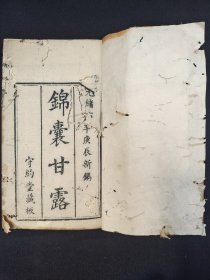 光緒六年庚辰新鐫
錦囊甘露
守約堂藏板